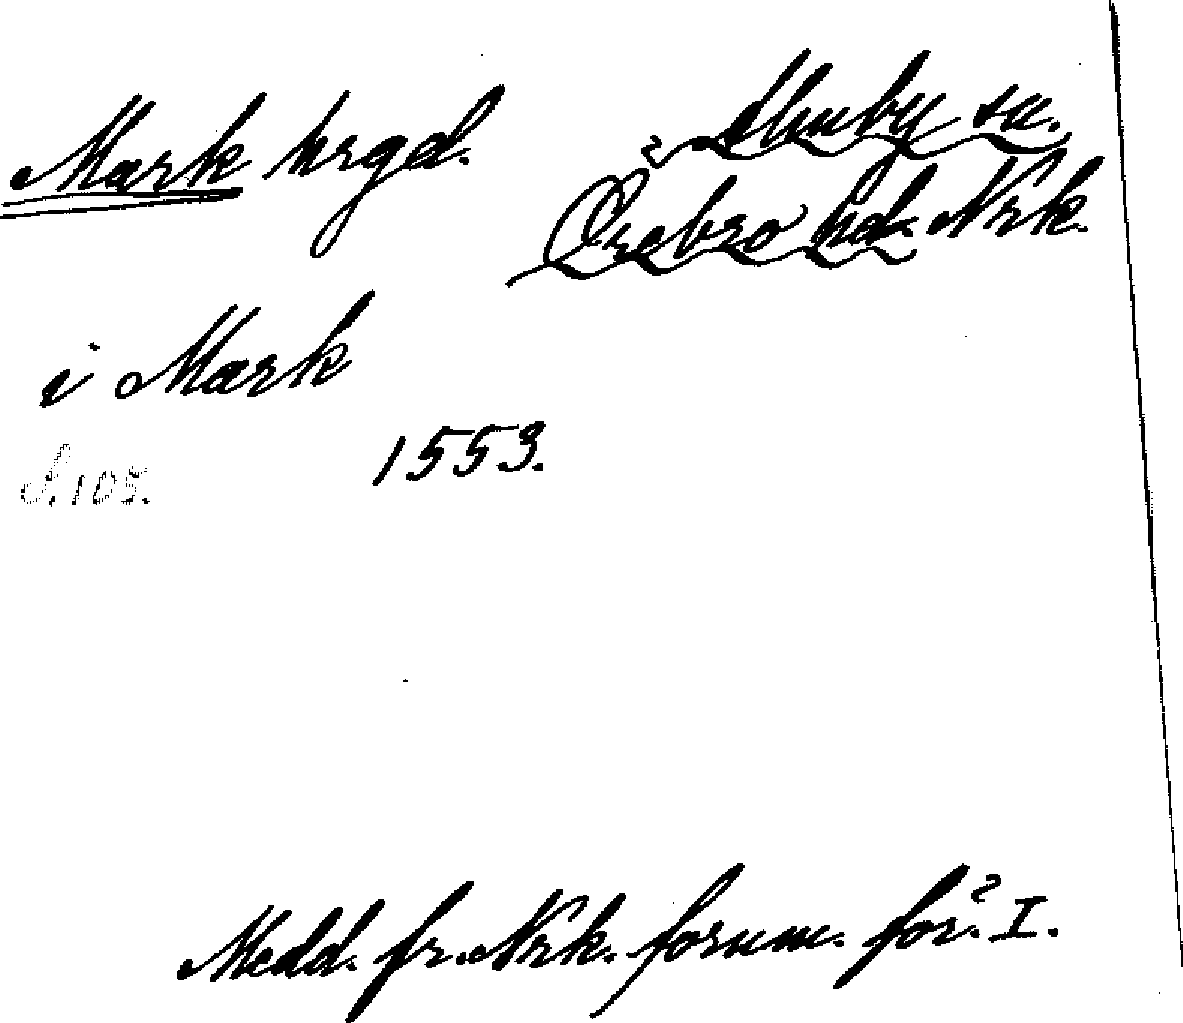 Mark hrgd. Almby sn.
Örebro hd. Nrk.
i Mark
1553.
S. 105.
Medd. fr. Nrk. fornm. för. I.